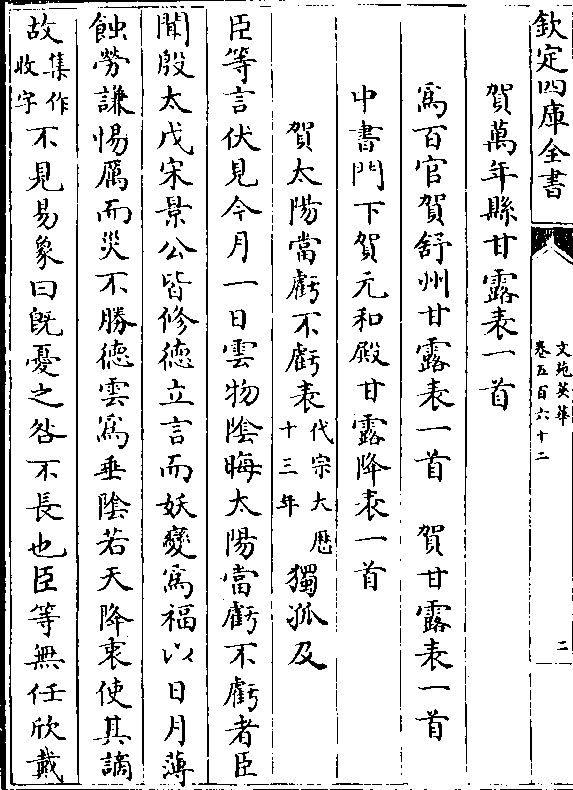 欽定四庫全書
文苑英華
卷五百六十二
二
賀萬年縣甘露表一首
爲百官賀舒州甘露表一首　賀甘露表一首
中書門下賀元和殿甘露降表一首
賀太陽當虧不虧表代宗大厯十三年獨孤及
臣等言伏見今月一日雲物陰晦太陽當虧不虧者臣
聞殷太戊宋景公皆修德立言而妖變爲福以日月薄
蝕勞謙惕厲而災不勝德雲爲垂陰若天降衷使其謫
故集作收字不見易象曰旣憂之咎不長也臣等無任欣戴